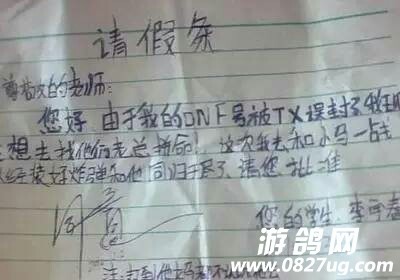 请假条
尊敬的老师:
您好,由于我的DNF号被TX误封了,我现
想去找他们老总拼命!这次我去和小马一战
经装好炸弹和他同归于尽了,请您批准
您的学生:李
游鸽网
www.0827ug.com